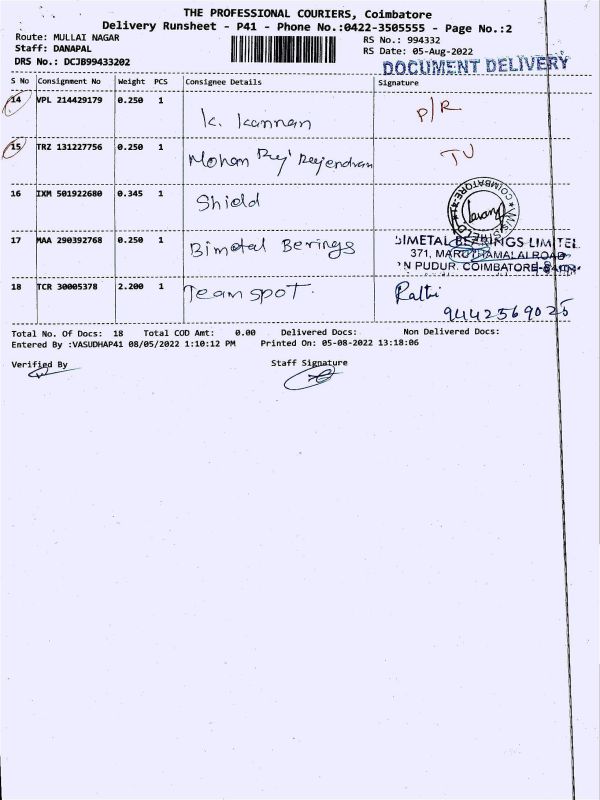 THE PROFESSIONAL COURIERS, Coimbatore
Delivery Runsheet - P41 - Phone No.:0422-3505555 - Page No.:2
Route: MULLAI NAGAR RS No.: 994332
Staff: DANAPAL RS Date: 05-Aug-2022
DRS No.: DCJB99433202 DOCUMENT DELIVERY
S No Consignment No Weight PCS Consignee Details Signature
14 VPL 214429179 0.250 1 K. Kannan P/R
15 TRZ 131227756 0.250 1 Mohan Raj Rajendran TV
16 IXM 501922680 0.345 1 Shield
COIMBATORE-41
M/S. SHIELD
17 MAA 290392768 0.250 1 Bimetal Berings BIMETAL BEARINGS LIMITED
371, MARUTHAMALAI ROAD
N PUDUR. COIMBATORE-
18 TCR 30005378 2.200 1 Team spot. Rathi
9442569025
Total No. Of Docs: 18 Total COD Amt: 0.00 Delivered Docs: Non Delivered Docs:
Entered By :VASUDHAP41 08/05/2022 1:10:12 PM Printed On: 05-08-2022 13:18:06
Verified By Staff Signature